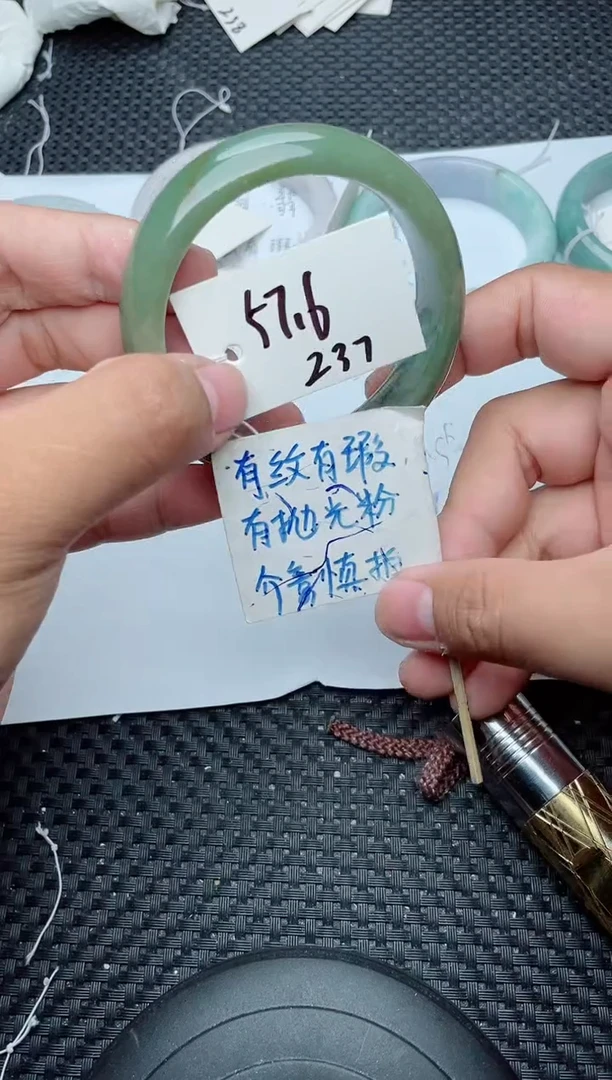 238
57.6
237
有纹有瑕
有抛光粉
介意慎拍